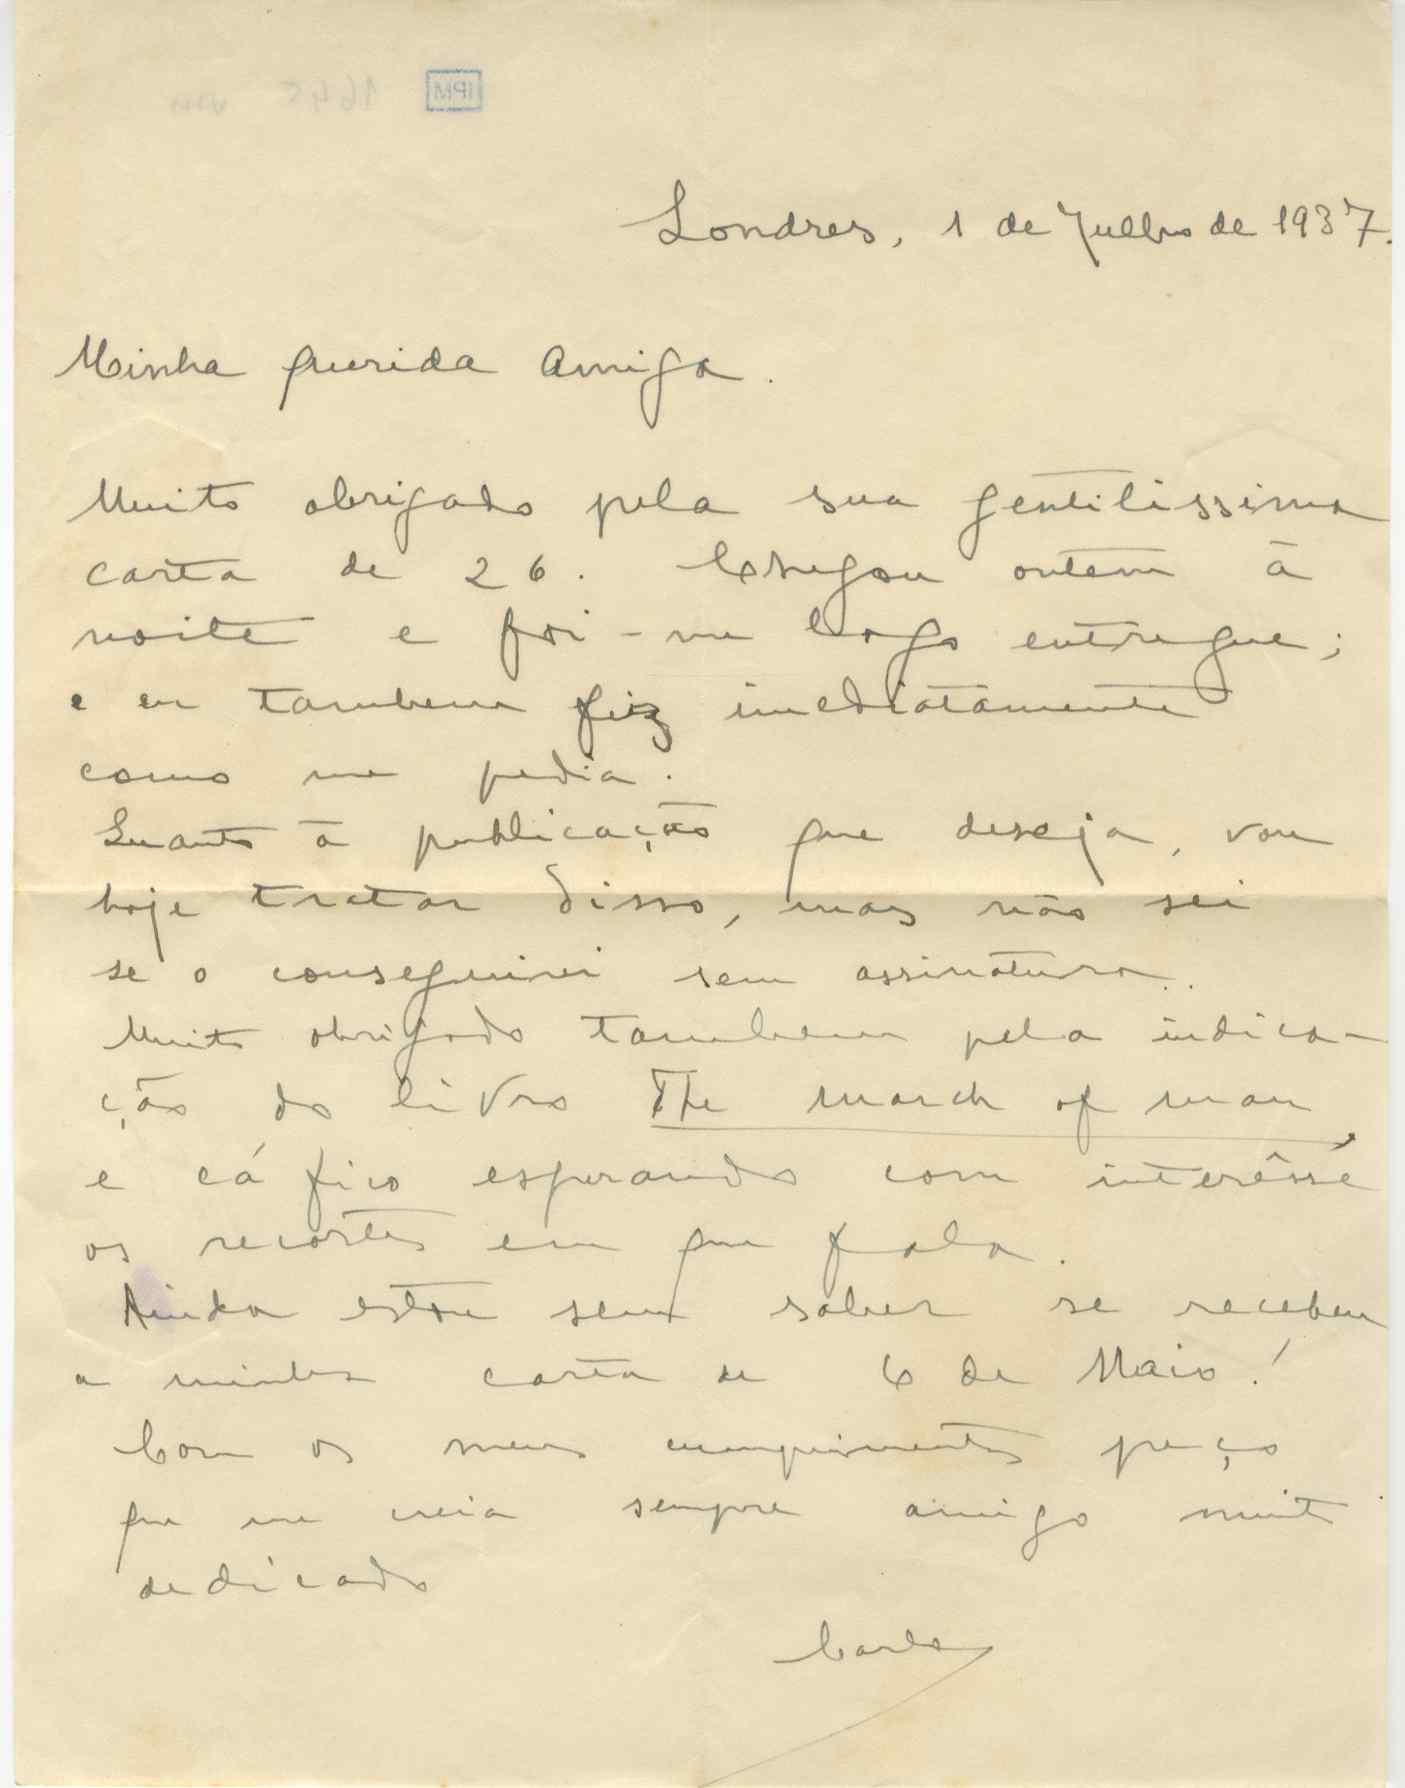 Londres, 1 de Julho de 1937.
Minha querida Amiga.
Muito obrigado pela sua gentilissima
carta de 26. Chegou ontem à
noite e foi-me logo entregue;
e eu tambem fiz imediatamente
como me pedia.
Quanto à publicação que deseja, vou
hoje tratar disso, mas não sei
se o conseguirei sem assinatura.
Muito obrigado tambem pela indica-
ção do livro The march of man,
e cá fico esperando com interêsse
os recortes em que fala.
Ainda estou sem saber se recebeu
a minha carta de 6 de Maio!
Com os meus cumprimentos peço
que me creia sempre amigo muito
dedicado
Carlos